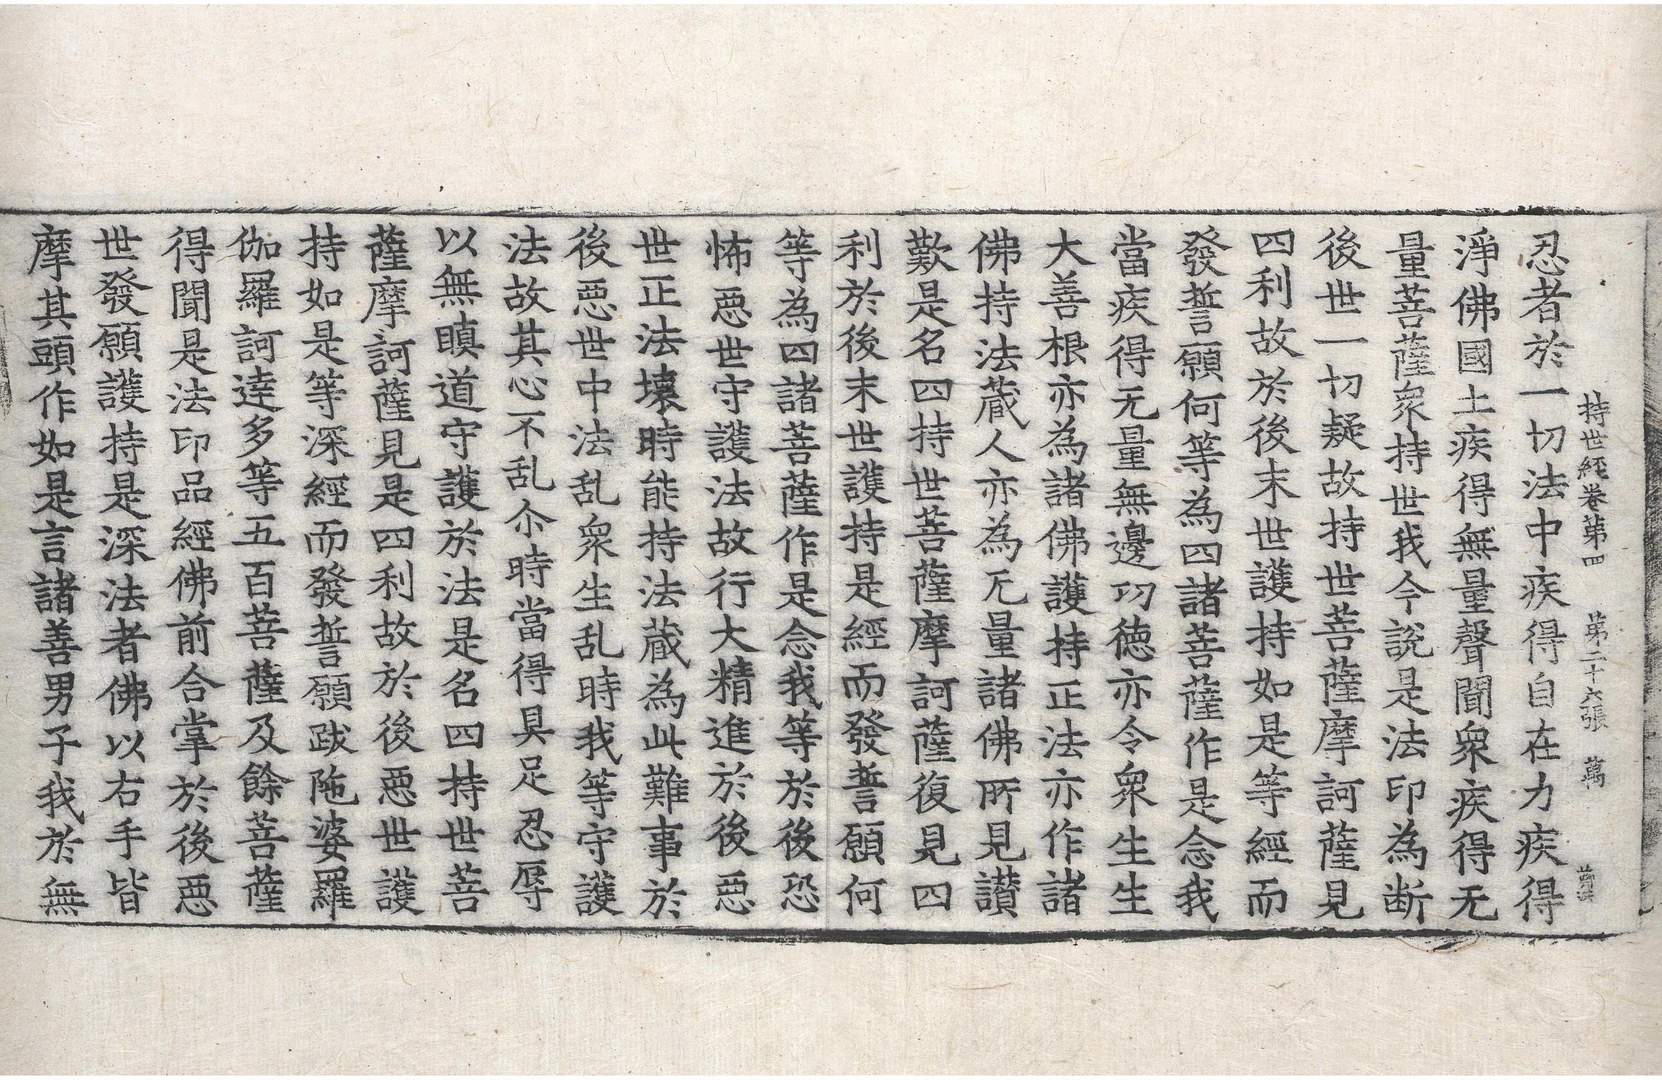 持世經卷第四　第二十六張　萬
忍者於一切法中疾得自在力疾得
淨佛國土疾得無量聲聞衆疾得无
量菩薩衆持世我今說是法印為断
後世一切疑故持世菩薩摩訶薩見
四利故於後末世護持如是等經而
發誓願何等為四諸菩薩作是念我
當疾得无量無邊功德亦令衆生生
大善根亦為諸佛護持正法亦作諸
佛持法蔵人亦為无量諸佛所見讃
歎是名四持世菩薩摩訶薩復見四
利於後末世護持是經而發誓願何
等為四諸菩薩作是念我等於後恐
怖惡世守護法故行大精進於後惡
世正法壊時能持法蔵為此難事於
後惡世中法乱衆生乱時我等守護
法故其心不乱尒時當得具足忍辱
以無瞋道守護於法是名四持世菩
薩摩訶薩見是四利故於後惡世護
持如是等深經而發誓願跋陁婆羅
伽羅訶達多等五百菩薩及餘菩薩
得聞是法印品經佛前合掌於後惡
世發願護持是深法者佛以右手皆
摩其頭作如是言諸善男子我於無